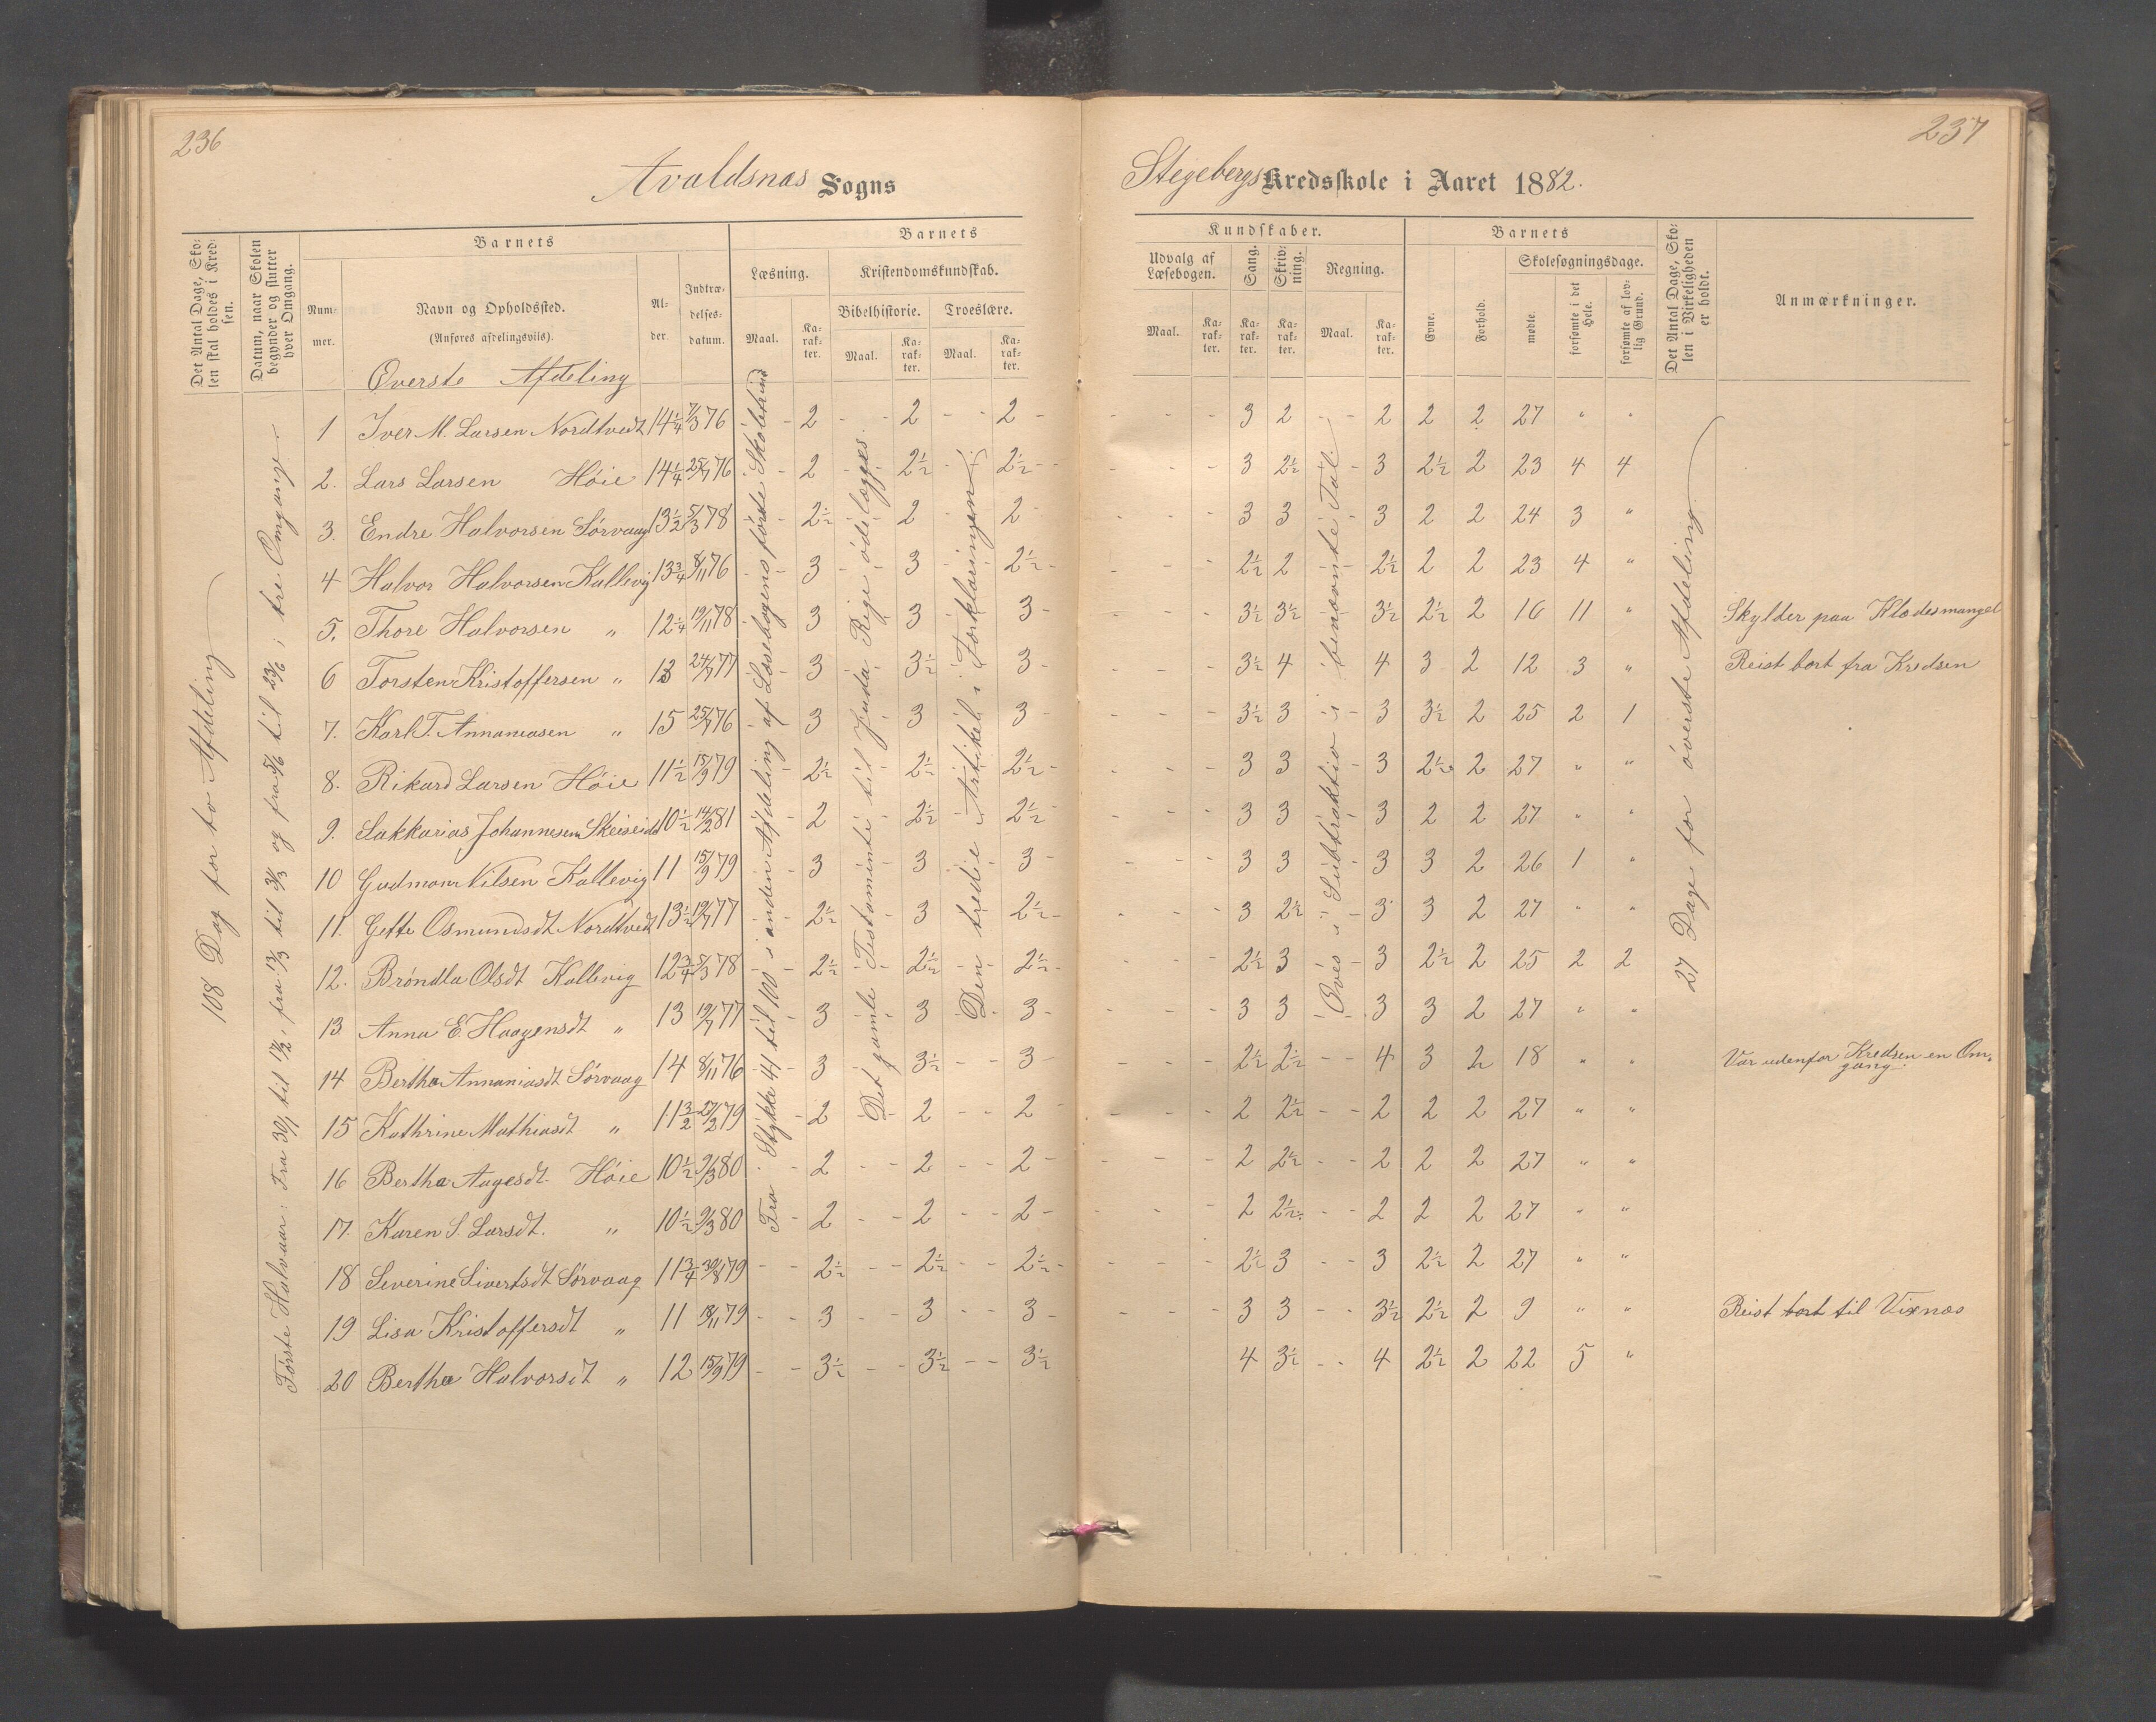 236
Avaldsnas Sogns
Det Antal Dage, Sko-
len skal holdes i Kred-
sen.
Datum, naar Skolen
begynder og slutter
hver Omgang.
Barnets
Num-
mer.
Navn og Opholdssted.
(Anføres afdelingsviis).
Al-
der
Indtræ-
delses-
datum.
Barnets
Læsning.
Maal.
Ka-
rak-
ter.
Kristendomskundskab.
Bibelhistorie.
Maal.
Ka-
rak-
ter.
Troeslære.
Maal.
Ka-
rak-
ter.
Øverste Afdeling
108 Dag for to Afdeling
Første Halvaar: Fra 30/1 til 17/2, fra 13/3 til 31/3 og fra 5/6 til 23/6 i tre Omgange
Fra Stykke 41 til 100 i anden Afdeling af Læsebogens første Skoletrind
Det gamle Testamente til Juda Rige ödelægges.
Den tredie Artikel i Forklaringen
1 Iver M. Larsen Nordtvedt 14 1/4 7/3 76 - 2 - - 2 - - 2 -
2. Lars Larsen Höie 14 1/4 25/7 76 - 2 2 1/2 2 1/2 - -
3. Endre Halvorsen Sörvaag 13 1/2 5/3 78 - 2 1/2 2 2 -
4 Halvor Halvorsen Kallevig 13 3/4 8/11 76 - 3 3 2 1/2 -
5. Thore Halvorsen " 12 1/4 19/11 78 - 3 3 3 -
6 Torsten Kristoffersen " 13 24/7 77 - 3 3 1/2 3 -
7. Karl T. Annaniasen " 15 25/7 76 - 3 3 3 -
8. Rikard Larsen Höie 11 1/2 15/9 79 - 2 1/2 2 1/2 2 1/2 -
9. Sakkarias Johannesen Skeiseid 10 1/2 14/2 81 - 2 2 1/2 2 1/2 -
10 Gudmon Nilsen Kallevig 11 15/9 79 3 3 3 -
11. Gette Osmundsdt Nordtvedt 13 1/2 19/7 77 - 2 1/2 3 2 1/2 -
12. Bröndla Olsdt Kallevig 12 3/4 5/3 78 - 2 1/2 2 1/2 2 1/2 -
13 Anna E. Haagensdt " 13 19/7 77 - 3 3 3 -
14 Bertha Annaniasdt Sörvaag 14 8/11 76 - 3 3 1/2 - - 3 -
15 Kathrine Mathiasdt " 11 3/2 27/2 79 - 2 - 2 - - 2 -
16 Bertha Aagesdt. Höie 10 1/2 9/3 80 - 2 - - 2 - - 2 -
17. Karen S. Larsdt. " 10 1/2 9/3 80 - 2 - - 2 - - 2 -
18 Severine Sivertsdt Sörvaag 11 3/4 30/8 79 - - 2 1/2 - - 2 1/2 - - 2 1/2 -
19 Lisa Kristoffersdt " 11 18/11 79 - - 3 - - 3 - - 3 -
20 Bertha Halvorsdt " 12 15/9 79 - - 3 1/2 - - 3 1/2 - - 3 1/2
237
Stegebergs Kredsskole i Aaret 1882.
Kundskaber.
Udvalg af
Læsebogen.
Maal.
Ka-
rak-
ter.
Sang.
Ka-
rak-
ter.
Skriv-
ning.
Ka-
rak-
ter.
Regning.
Maal.
Ka-
rak-
ter.
Barnets
Evne.
Forhold.
Skolesøgningsdage.
mødte.
forsømte i det
Hele.
forsømte af lov-
lig Grund.
Det Antal Dage, Sko-
len i Virkeligheden
er holdt.
Anmærkninger.
Öves i Subtraktion i benævnte Tal
27 Dage for överste Afdeling
- - - 3 2 - - 2 2 2 27 " "
- - - 3 2 1/2 - 3 2 1/2 2 23 4 4
- - - 3 3 - 3 2 2 24 3 "
- - - 2 1/2 2 2 1/2 2 2 23 4 "
- - - 3 1/2 3 1/2 3 1/2 2 1/2 2 16 11 " Skylder paa Klædesmangel
- - - 3 1/2 4 4 3 2 12 3 " Reist bort fra Kredsen
- - - 3 1/2 3 - 3 3 1/2 2 25 2 1
- - - 3 3 - 3 2 1/2 2 27 " "
- - - 3 3 3 2 2 27 " "
- - - 3 3 - 3 3 2 26 1 "
- - - 3 2 1/2 - 3 3 2 27 " "
- - - 2 1/2 3 - 3 2 1/2 2 25 2 2
- - - 3 3 - 3 3 2 27 " "
- - - 2 1/2 2 1/2 - - 4 3 2 18 " " Var udenfor Kredsen en Om-
gang.
- - - 2 2 1/2 - - 2 2 2 27 " "
- - - 2 2 1/2 - - 2 2 2 27 " "
- - - 2 2 1/2 - - 2 2 2 27 " "
- - - 2 1/2 3 - - 3 2 1/2 2 27 " "
- - - 3 3 - - 3 1/2 2 1/2 2 9 " " Reist bort til Vixnæs
4 3 1/2 - - 4 2 1/2 2 22 5 "